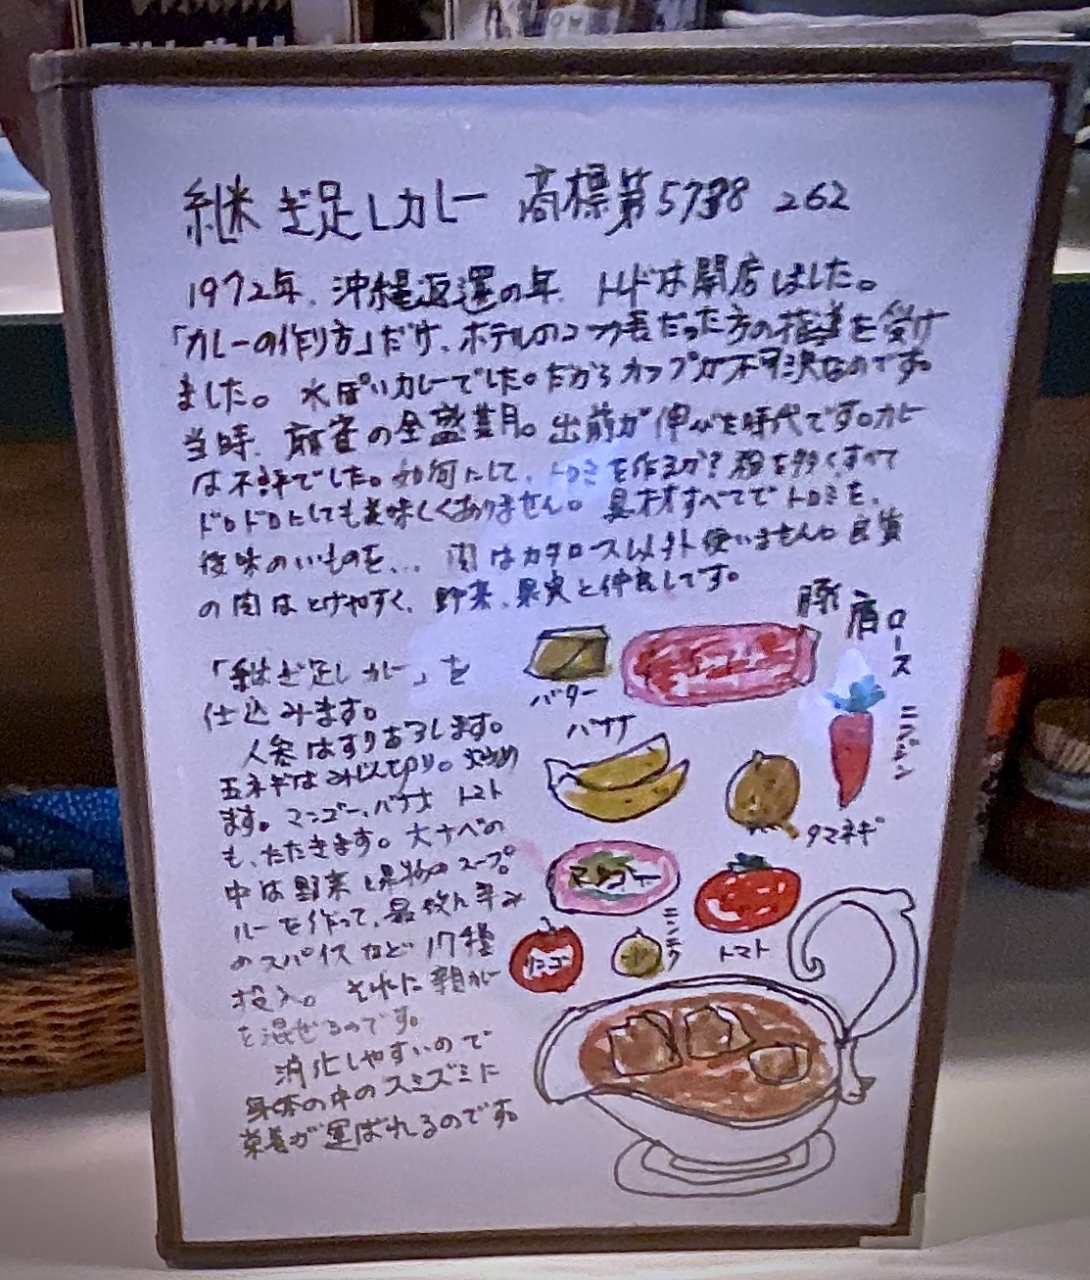 継ぎ足しカレー 商標第5738262
1972年、沖縄返還の年、トドは開店しました。
「カレーの作り方」だけ、ホテルのコック長だった方の指導を受け
ました。水ぽいカレーでした。だからカップが不可決なのです。
当時、麻雀の全盛期。出前が伸びた時代です。カレー
は不評でした。如何にして、トロミを作るか?粉を多くすって
ドロドロにしても美味しくありません。具材すべてでトロミを、
後味のいいものを... 肉はカタロース以外使いません。良質
の肉はとけやすく、野菜、果実と仲良しです。
豚肩ロース
「継ぎ足しカレー」を
仕込みます。
人参はすりおろします。
玉ネギはみじん切り。炒め
ます。マンゴー、バナナ トマト
も、たたきます。大ナベの
中は野菜と果物のスープ
ルーを作って、最後に辛み
のスパイスなど17種
投入。それに親カレー
を混ぜるのです。
消化しやすいので
身体の中のスミズミに
栄養が運ばれるのです。
バター
ニンジン
バナナ
タマネギ
マンゴー
リンゴ
ニンニク
トマト